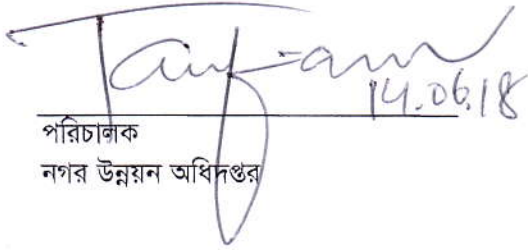 14.06.18
পরিচালক
নগর উন্নয়ন অধিদপ্তর